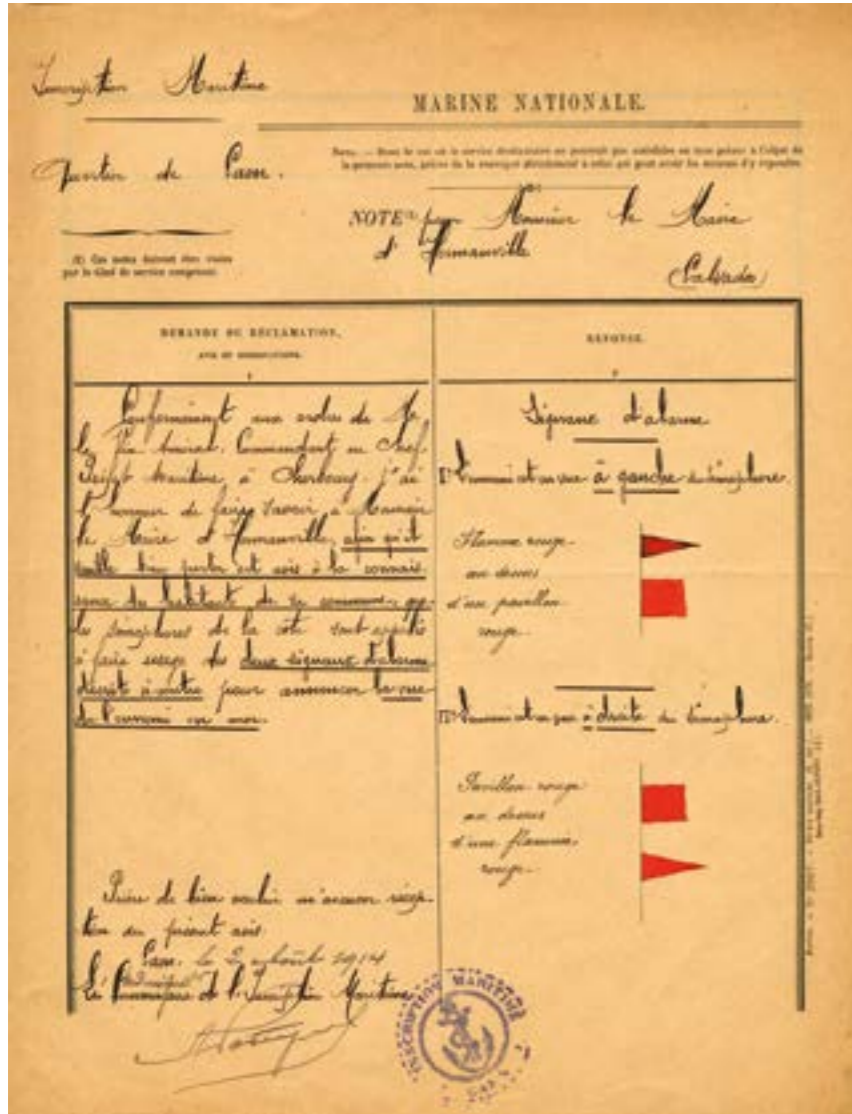 Inscription Maritime
Quartier de Caen.
MARINE NATIONALE.
NOTE pour Monsieur le Maire
d'Hermanville
(Calvados)
(1) Ces notes doivent être visées
par le Chef de service compétent.
DEMANDE OU RÉCLAMATION,
AVIS ET OBSERVATIONS.
RÉPONSE.
Conformément aux ordres de M.
le Vice Amiral, Commandant en Chef
Préfet Maritime à Cherbourg, j'ai
l'honneur de faire savoir à Monsieur
le Maire d'Hermanville, afin qu'il
veuille bien porter cet avis à la connais
sance des habitants de sa commune, que
les sémaphores de la côte sont appelés
à faire usage des deux signaux d'alarme
décrits ci-contre pour annoncer la vue
de l'ennemi en mer.
Prière de bien vouloir m'accuser récep-
tion du présent avis.
Caen, le 2 août 1914
de l'Inscription Maritime
Signaux d'alarme
I° L'ennemi est en vue à gauche du sémaphore.
Flamme rouge
au dessus
d'un pavillon
rouge.
II° L'ennemi est en vue à droite du sémaphore.
Pavillon rouge
au dessus
d'une flamme
rouge.
INSCRIPTION MARITIME
CAEN